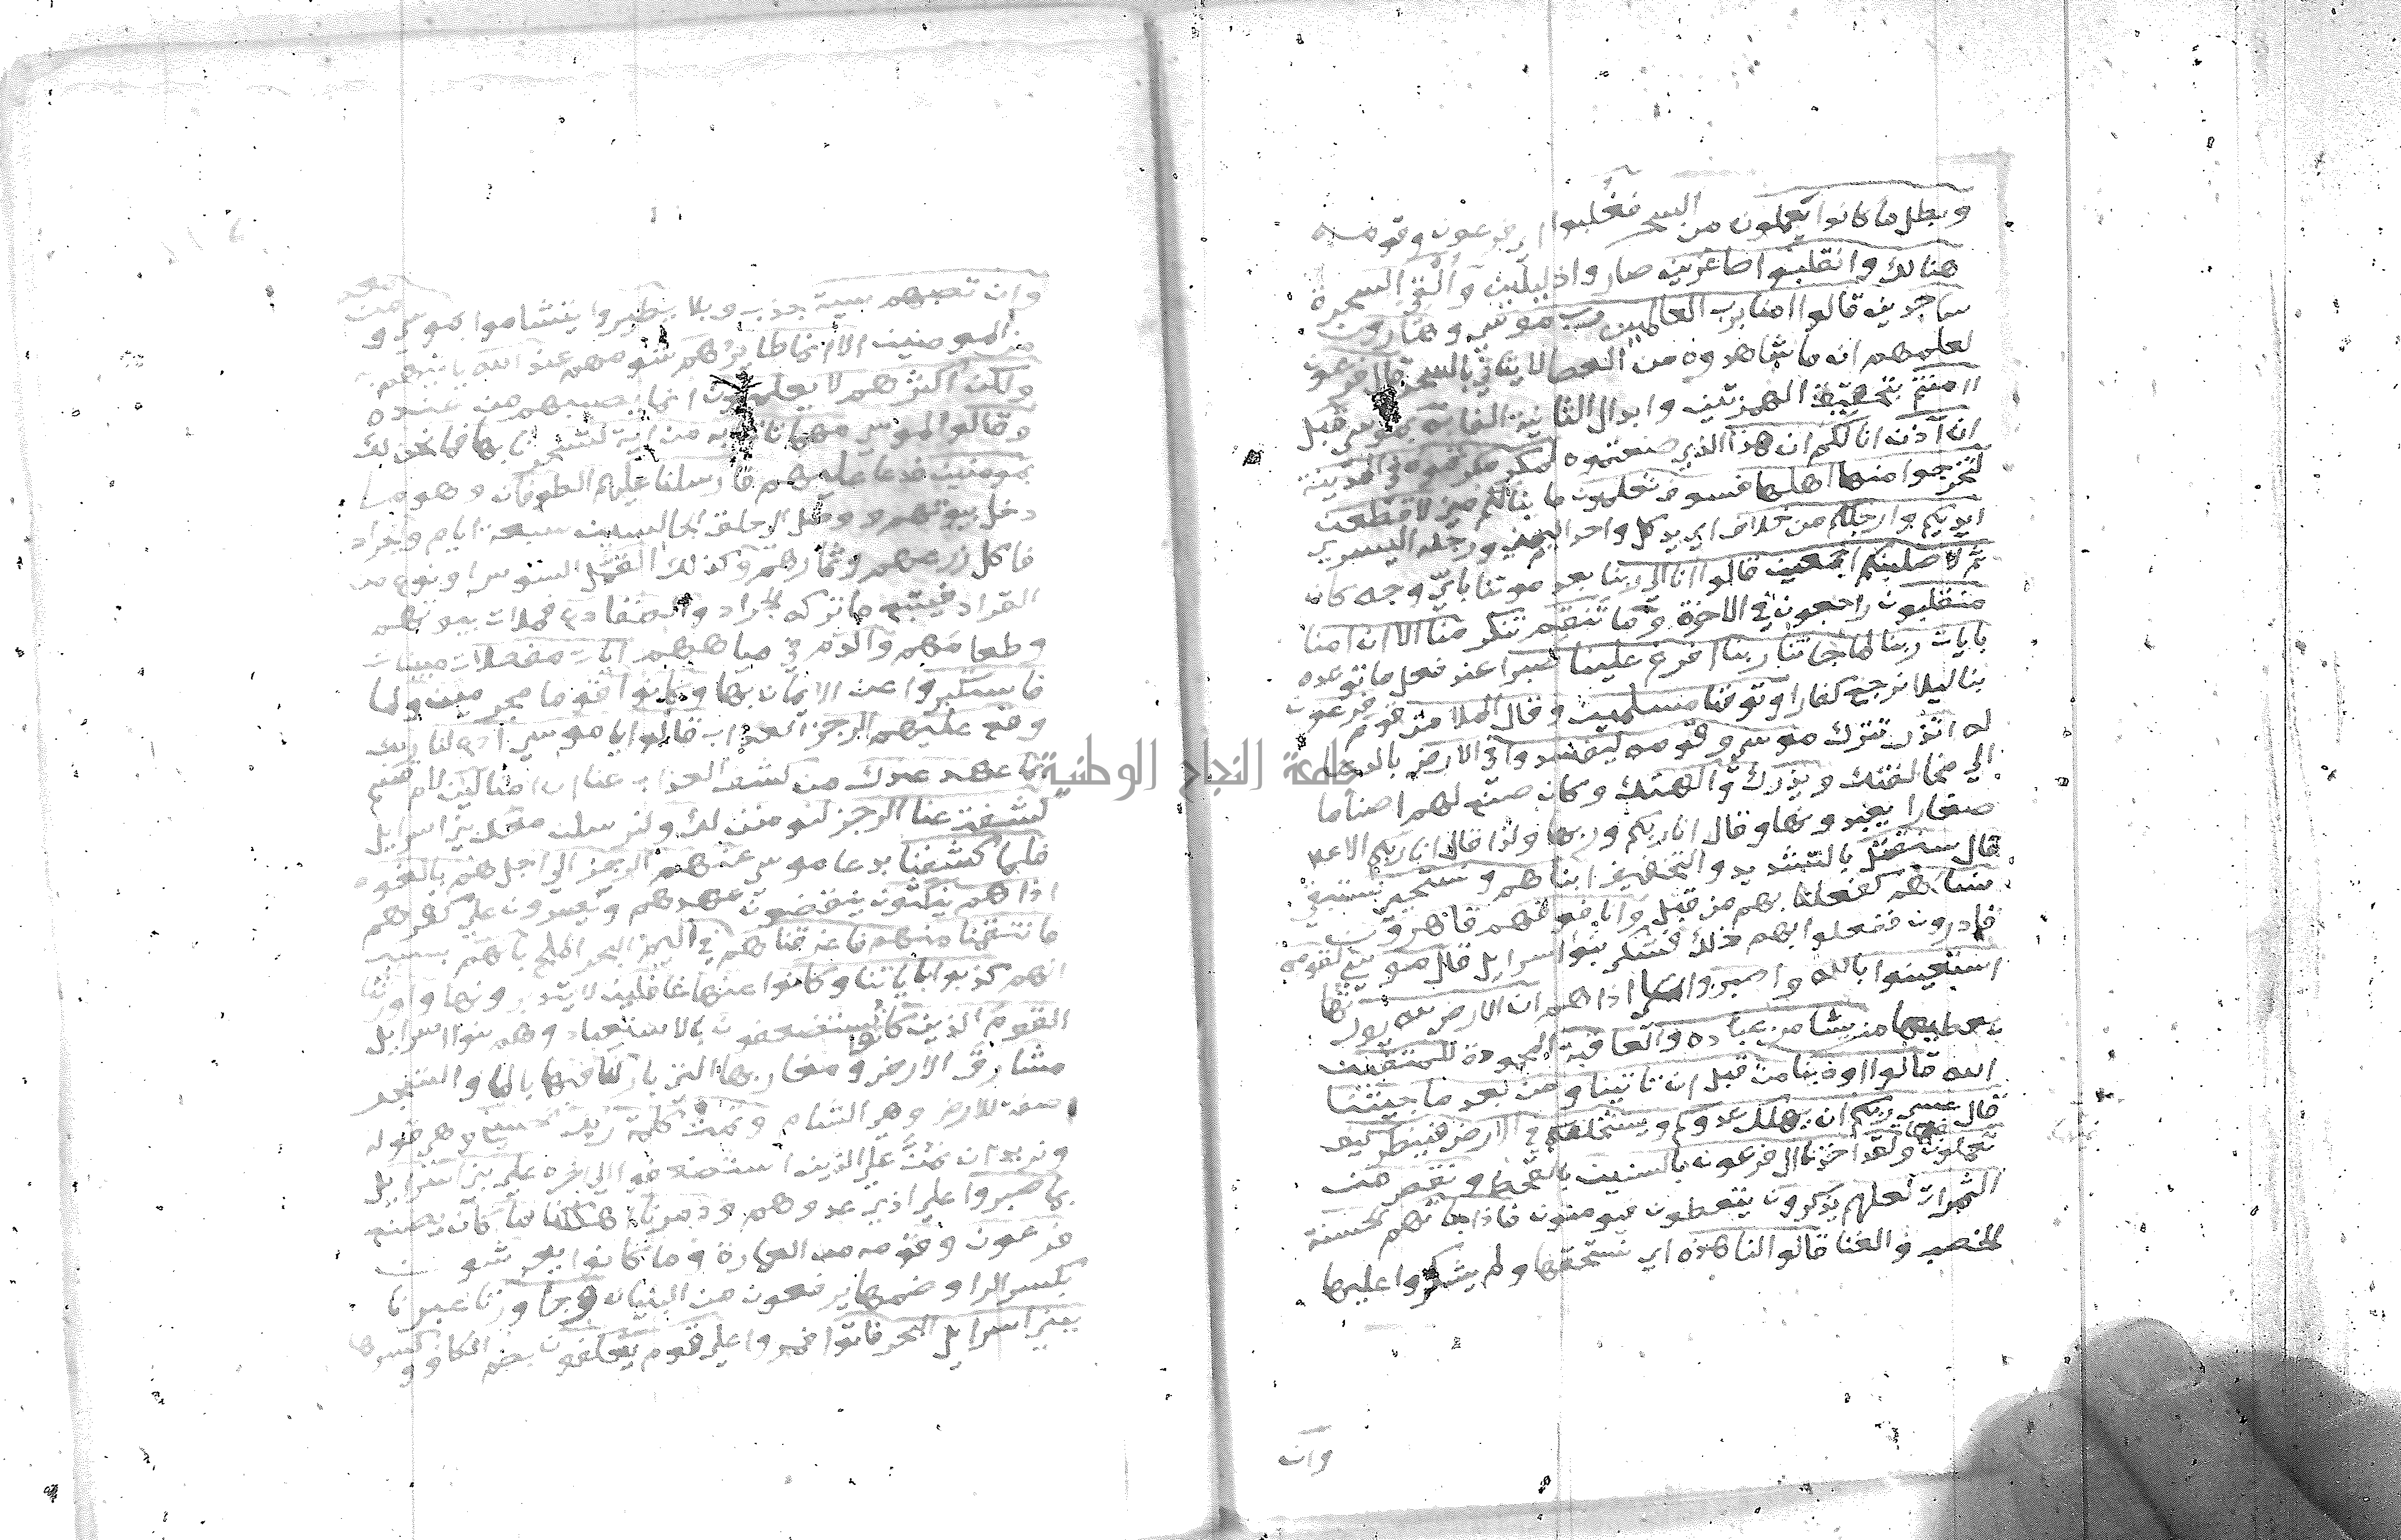 وبطل ما كانوا يعملون من السحر فغلبوا اي فرعون وقومه
هنالك وانقلبوا صاغرين صاروا ذليلين وألقي السحرة
ساجدين قالوا امنا برب العالمين رب موسي وهارون
لعلمهم ان ما شاهدوه من العصا لا يتاتي بالسحر قال فرعون
اامنتم بتحقيق الهمزتين وابدال الثانية الفا به بموسي قبل
ان آذن انا لكم ان هذا الذي صنعتموه لمكر مكرتموه في المدينة
لتخرجوا منها اهلها فسوف تعلمون ما ينالكم مني لاقطعن
ايديكم وارجلكم من خلاف اي يد كل واحد اليمني ورجله اليسري
ثم لاصلبنكم اجمعين قالوا انا الي ربنا بعد موتنا باي وجه كان
منقلبون راجعون في الاخرة وما تنقم تنكر منا الا ان امنا
بايات ربنا لما جاتنا ربنا افرغ علينا صبرا عند فعل ما توعده
بنا ليلا نرجع كفارا وتوفنا مسلمين وقال الملا من قوم فرعون
له اتذر تترك موسي وقومه ليفسدوا في الارض بالدعا
الي مخالفتك ويذرك وآلهتك وكان صنع لهم اصناما
صغارا يعبدونها وقال انا ربكم وربها ولذا قال انا ربكم الاعلي
قال سنقتل بالتشديد والتخفيف ابناهم ونستحيي نستبقي
نساهم كفعلنا بهم من قبل وانا فوقهم قاهرون
قادرون ففعلوا بهم ذلك فشكي بنوا اسرايل قال موسي لقومه
استعينوا بالله واصبروا علي اذاهم ان الارض لله يورثها
يعطيها من يشا من عباده والعاقبة المحمودة للمتقين
الله قالوا اوذينا من قبل ان تاتينا ومن بعد ما جيتنا
قال عسي ربكم ان يهلك عدوكم ويستخلفكم في الارض فينظر كيف
تعملون فيها ولقد اخذنا ال فرعون بالسنين بالقحط ونقص من
الثمرات لعلهم يذكرون يتعظون فيومنون فاذا جاتهم الحسنة
الخصب والغنا قالوا لنا هذه اي نستحقها ولم يشكروا عليها
وان
وان تصبهم سية جذب وبلا يطيروا يتشاموا بموسي ومن معه
من المومنين الا انما طايرهم شومهم عند الله ياتيهم به
ولكن اكثرهم لا يعلمون ان ما يصيبهم من عنده
وقالوا لموسي مهما تاتنا به من اية لتسحرنا بها فما نحن لك
بمومنين فدعا عليهم فارسلنا عليهم الطوفان وهو ما
دخل بيوتهم ووصل الي حلق الجالسين سبعة ايام والجراد
فاكل زرعهم وثمارهم وكذلك القمل السوس او نوع من
القراد فيتبع ما تركه الجراد والضفادع فملات بيوتهم
وطعامهم والدم في مياههم ايات مفصلات مبينات
فاستكبروا عن الايمان بها وكانوا قوما مجرمين ولما
وقع عليهم الرجز العذاب قالوا يا موسي ادع لنا ربك
بما عهد عندك من كشف العذاب عنا ان امنا لين لام قسم
كشفت عنا الرجز لنومنن لك ولنرسلن معك بني اسرايل
فلما كشفنا بدعا موسي عنهم الرجز الي اجل هم بالغوه
اذا هم ينكثون ينقضون عهدهم ويصرون علي كفرهم
فانتقمنا منهم فاغرقناهم في اليم البحر الملح بانهم بسبب
انهم كذبوا باياتنا وكانوا عنها غافلين لا يتدبرونها واورثنا
القوم الذين كانوا يستضعفون بالاستعباد وهم بنوا اسرايل
مشارق الارض ومغاربها التي باركنا فيها بالما والشجر
صفة للارض وهي الشام وتمت كلمة ربك الحسني وهي قوله
ونريد ان نمن علي الذين استضعفوا الي اخره علي بني اسرايل
بما صبروا علي اذي عدوهم ودمرنا اهلكنا ما كان يصنع
فرعون وقومه من العمارة وما كانوا يعرشون
بكسر الرا وضمها يرفعون من البنيان وجاوزنا عبرنا
ببني اسرايل البحر فاتوا فمروا علي قوم يعكفون بضم الكاف وكسرها
جامعة النجاح الوطنية